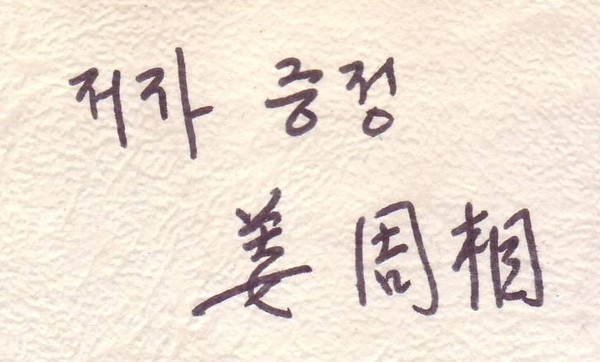 저자 증정
姜周相